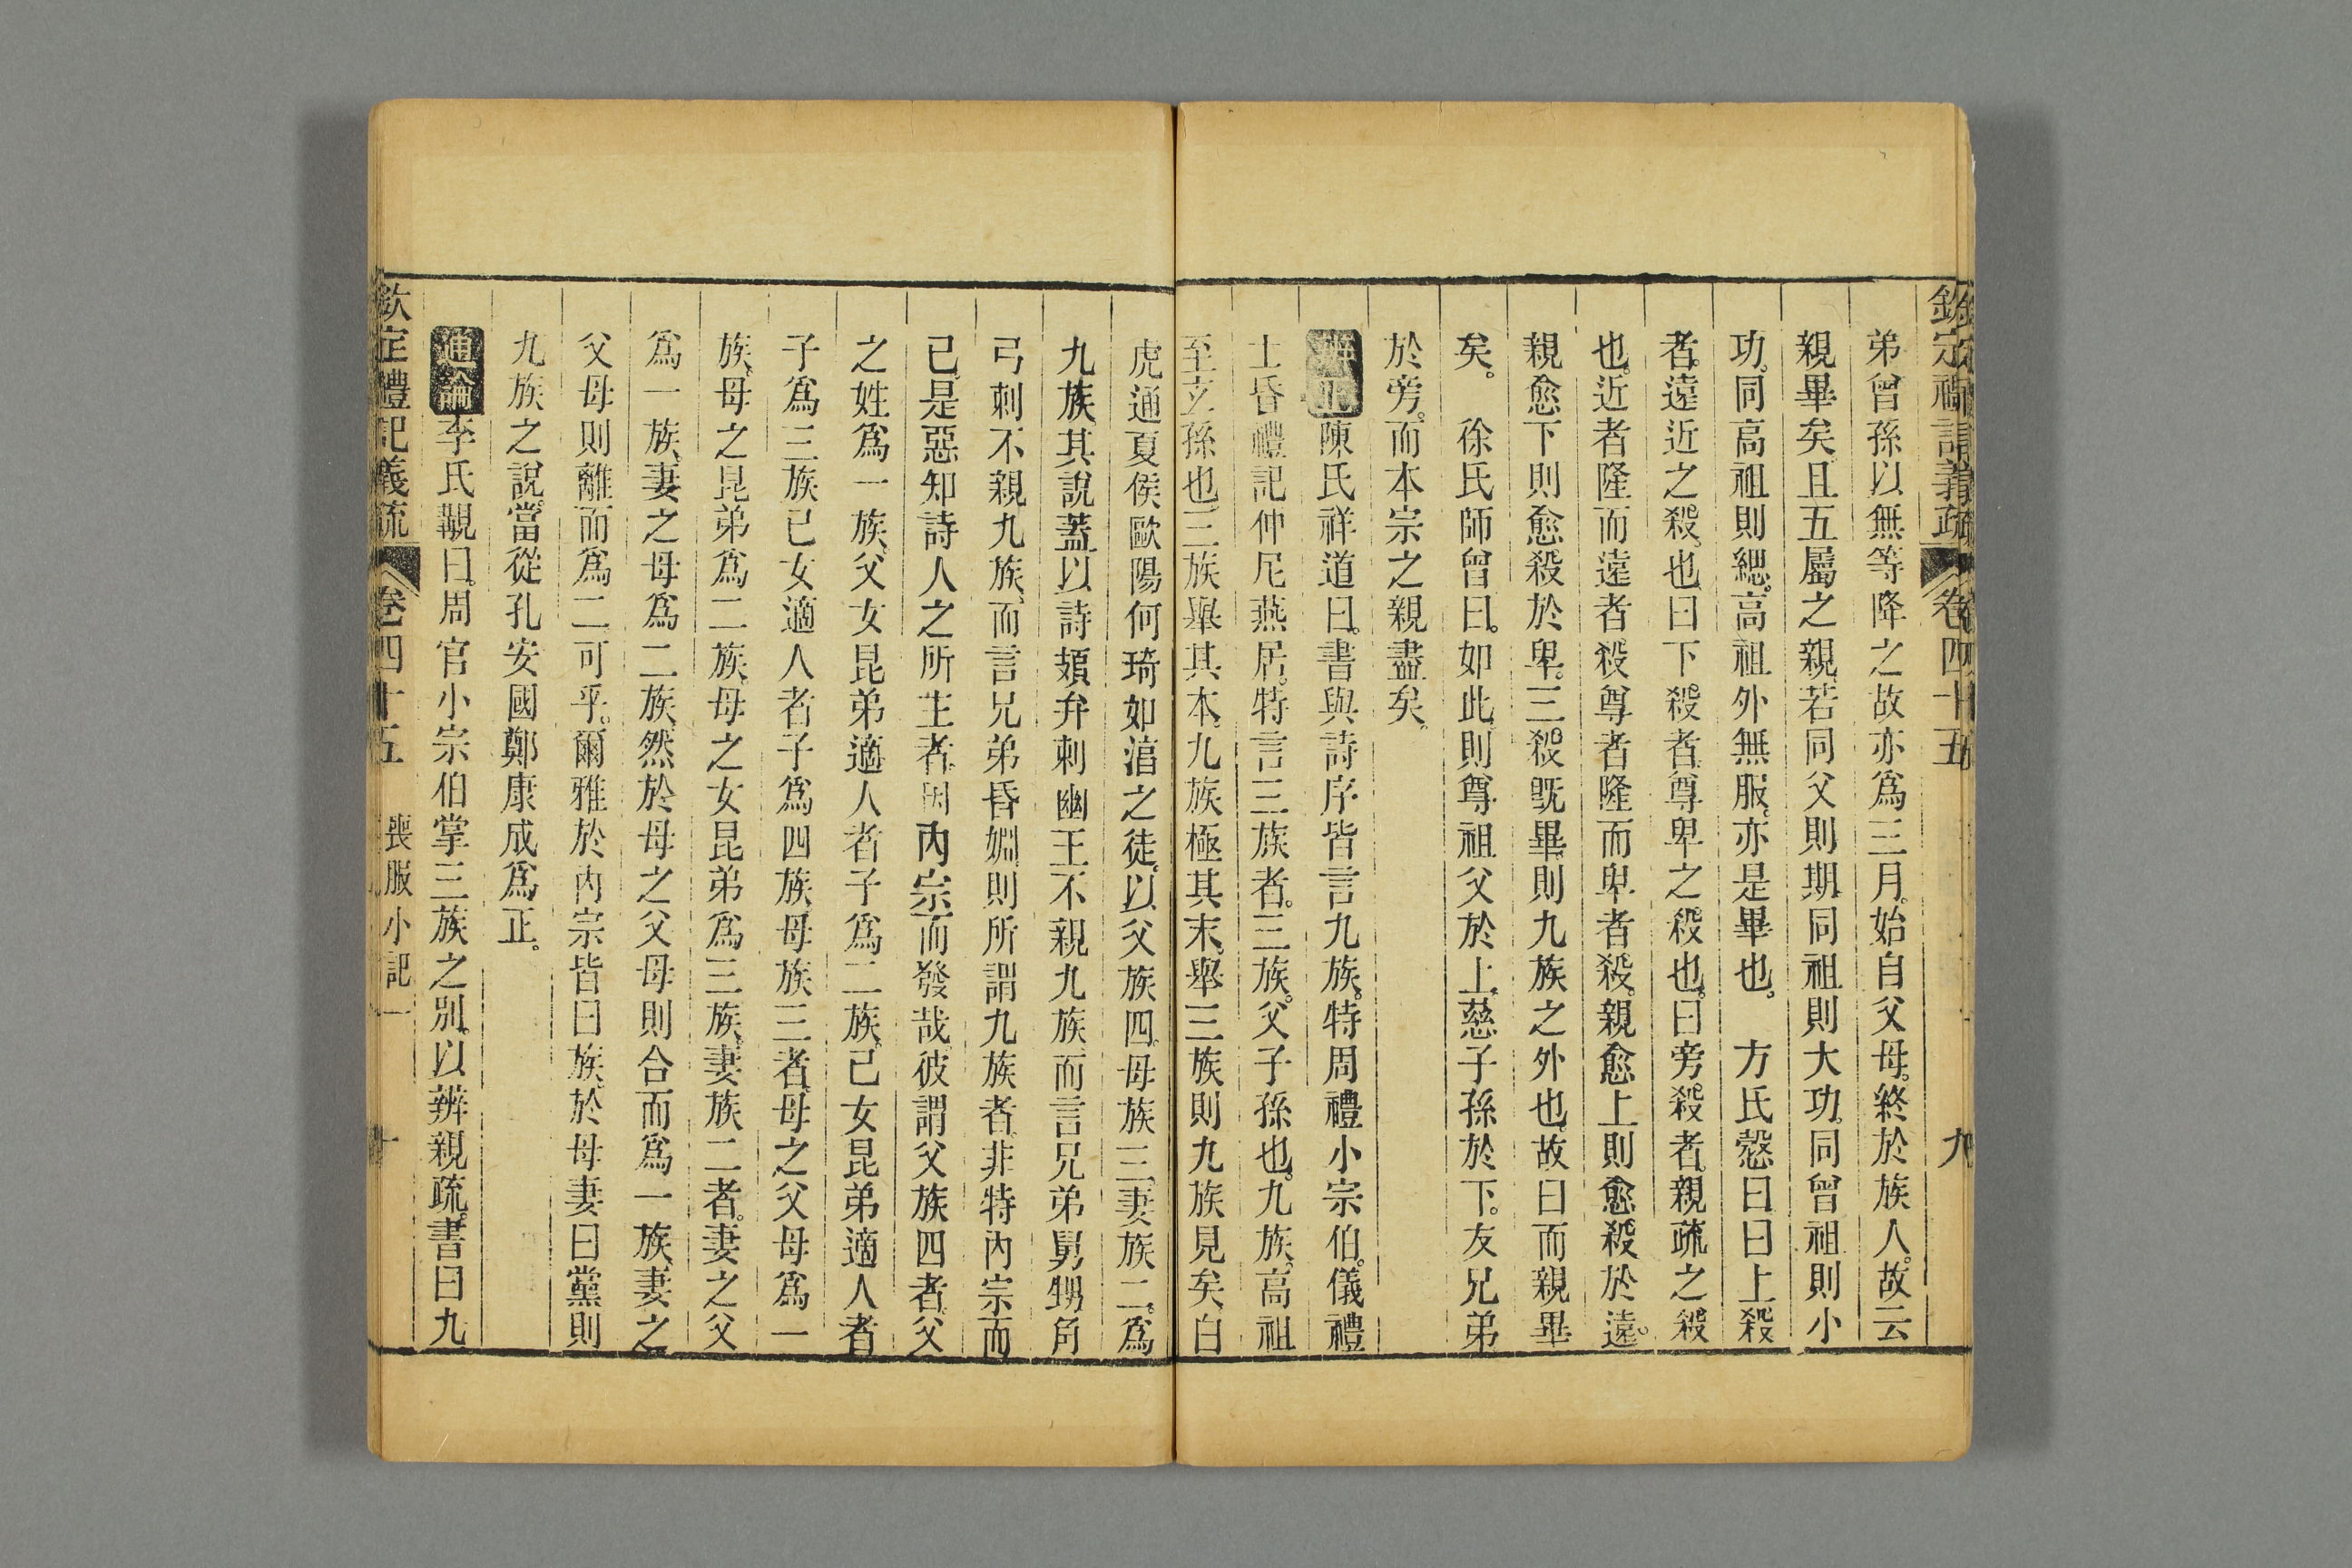 欽定禮記義疏 卷四十五 九
弟曾孫以無等降之故亦爲三月。始自父母。終於族人。故云
親畢矣。且五屬之親。若同父則期。同祖則大功。同曾祖則小
功。同高祖則緦。高祖外無服。亦是畢也。 方氏慤曰曰上殺
者。遠近之殺。也曰下殺者。尊卑之殺也。曰旁殺者。親疏之殺
也。近者隆而遠者殺。尊者隆而卑者殺。親愈上則愈殺於遠。
親愈下則愈殺於卑。三殺旣畢。則九族之外也。故曰而親畢
矣。 徐氏師曾曰。如此。則尊祖父於上。慈子孫於下。友兄弟
於旁。而本宗之親盡矣。
辨正陳氏祥道曰。書與詩序皆言九族。特周禮小宗伯。儀禮
士昏禮記仲尼燕居。特言三族者。三族。父子孫也。九族。高祖
至玄孫也。三族舉其本。九族極其末。舉三族則九族見矣。白
虎通夏侯歐陽何琦如淯之徒。以父族四。母族三。妻族二。爲
九族。其說蓋以詩頍弁刺幽王不親九族。而言兄弟舅甥。角
弓刺不親九族。而言兄弟昏姻。則所謂九族者。非特內宗而
已。是惡知詩人之所主者。因內宗而發哉。彼謂父族四者。父
之姓爲一族。父女昆弟適人者子爲二族。己女昆弟適人者
子爲三族。己女適人者子爲四族。母族三者。母之父母爲一
族。母之昆弟爲二族。母之女昆弟爲三族。妻族二者。妻之父
爲一族。妻之母爲二族。然於母之父母則合而爲一族。妻之
父母則離而爲二可乎。爾雅於內宗皆曰族。於母妻曰黨。則
九族之說。當從孔安國鄭康成爲正。
通論李氏覯曰。周官小宗伯掌三族之別。以辨親疏。書曰九
欽定禮記義疏 卷四十五 喪服小記一 十